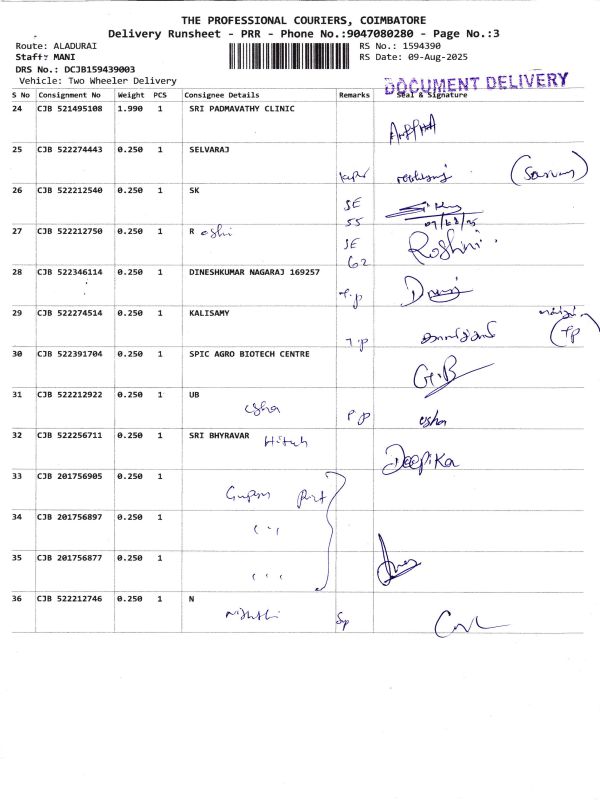 THE PROFESSIONAL COURIERS, COIMBATORE
Delivery Runsheet - PRR - Phone No.:9047080280 - Page No.:3
Route: ALADURAI
RS No.: 1594390
Staff: MANI
RS Date: 09-Aug-2025
DRS No.: DCJB159439003
Vehicle: Two Wheeler Delivery
DOCUMENT DELIVERY
S No Consignment No Weight PCS Consignee Details Remarks Seal & Signature
24 CJB 521495108 1.990 1 SRI PADMAVATHY CLINIC
25 CJB 522274443 0.250 1 SELVARAJ
26 CJB 522212540 0.250 1 SK SE 55
27 CJB 522212750 0.250 1 R oshi SE 62 Roshini
28 CJB 522346114 0.250 1 DINESHKUMAR NAGARAJ 169257
29 CJB 522274514 0.250 1 KALISAMY
30 CJB 522391704 0.250 1 SPIC AGRO BIOTECH CENTRE G.B
31 CJB 522212922 0.250 1 UB usha PP usha
32 CJB 522256711 0.250 1 SRI BHYRAVAR Deepika
33 CJB 201756905 0.250 1
34 CJB 201756897 0.250 1
35 CJB 201756877 0.250 1
36 CJB 522212746 0.250 1 N